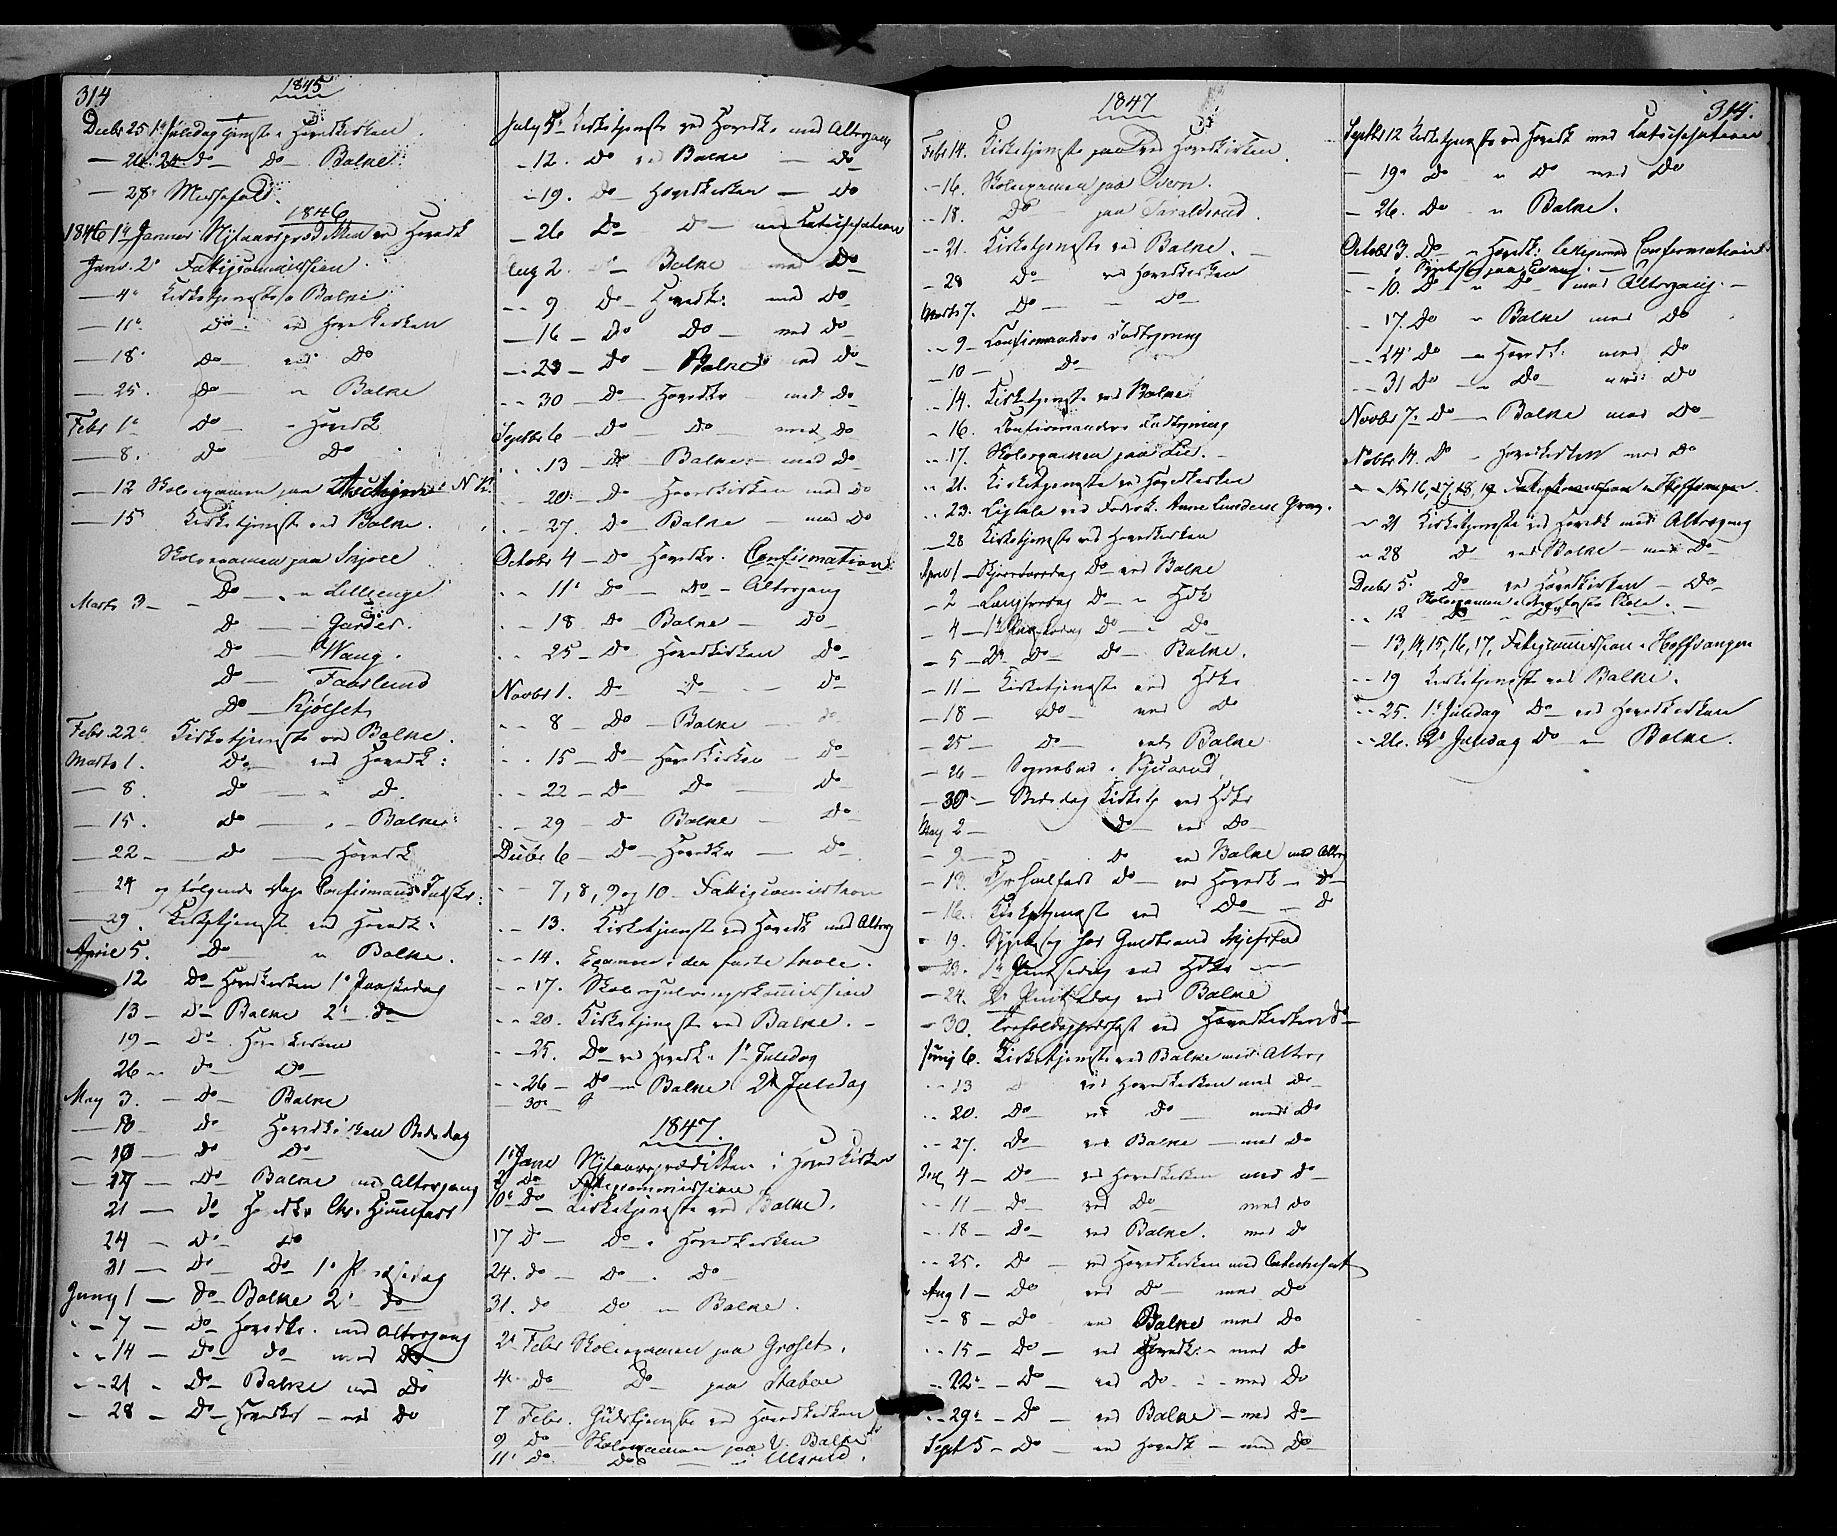 314
1845
Decbr 25 1ste Juledag tjenste i Hovedkirken
— 26 2den do — Do — Balke
— 28de Messefald.
1846
1846 1ste Januar Nytaarsprædiken ved Hovedk
Janv. 2de Fattigcommission
— 4de Kirketjeneste i Balke
— 11te Do — ved Hovedkirken
— 18 Do — ved Do
— 25. Do — " Balke
Febr 1ste Do — " Hovedk
— 8. Do Do
— 12 Skoleexamen paa
— 15 Kirketjeneste ved Balke.
Skoleexamen paa
Marts 3 — Do — " Lilleenge
Do — Garder.
Do — Wang.
Do — Faarlund
Do — Kjølset
Febr. 22de Kirketjeneste ved Balke.
Marts 1. Do — ved Hovedk:
— 8. Do — " Do
— 15. Do — " Balke
— 22 — Do — Hovedk
— 24 og følgende Dage Confirmand
— 29. Kirketjeneste ved Hovedk:
April 5. Do — " Balke.
12 Do Hovedkirken 1ste Paaskedag
13 — Do Balke 2den do
19 — Do. Hovedkirken
26 — do — Do —
May 3. — Do — Balke
— 8 do Hovedkirken Bededag
— 10 do Do
— 17 — Do — Balke med Altergang
21 — do Hovedkr Chr. Himmelfart
24 — Do — Do
31 — Do — Do 1ste Pintsedag
Juny 1 — do — Balke 2den do
" — 7 — Do — Hovedkr. med Altergang
" — 14 — Do — do — med Do
" — 21 " Do — Balke med Do
— 28 — Do — Hovedkr — med Do
July 5te Kirketjeneste ved Hovedk. med Altergang
— 12. Do ved Balke — Do
— 19. Do Hovedkirken — Do
— 26 Do — Do — med Catechisation
Aug 2. Do — Balke med Do
— 9 Do — Hovedk: med Do
— 16 — Do Do — med do
— 23 — Do — Balke med Do
— 30 — Do — Hovedkr — med Do
Septbr 6 — Do — Do — med Do
— 13 — Do — Balke — med Do
— 20: — Do Hovedkirken med Do
— 27. Do — Balke — med Do
Octobr 4 — Do Hovedkr. Confirmation
— 11te Do — Do — Altergang
— 18 Do — Balke — Do
— 25 — Do Hovedkirken Do
Novbr 1. Do Do — Do
— 8 — Do — Balke — do
— 15 — Do — Hovedkirken — Do
— 22 — Do — Do — Do
— 29 — Do Balke — Do
Decbr 6 — Do — Hovedkr — Do
— 7, 8, 9 og 10 — Fattigcommission
— 13. Kirketjeneste ved Hovedk med Alterg
— 14. Examen i den faste Skole.
— 17. Skole commission
— 20. Kirketjeneste ved Balke. —
— 25. Do — ved Hovedk. 1ste Juledag
— 26 — Do — " Balke 2den Juledag
— 30te
1847.
1ste Janr Nytaarsprædiken i Hovedkirken
2 Do Fattigcommission
10de Do — Kirketjeneste ved Balke.
17 Do — Do " Hovedkirken
24. do — Do — Do —
31. do Do " Balke.
2den Febr Skoleexamen paa Groset.
4de Do Do — paa Stabæk
7 Febr. Gudstjeneste ved Hovedkirken
9 Do — Skoleexamen paa V. Balke
11te Do — Do — " Ulsrud.
1847
Febr 14. Kirketjeneste ved Hovedkirken.
— 16. Skoleexamen paa Evern.
— 18. Do — paa Taralderud.
— 21. Kirketjeneste ved Balke.
— 28 Do ved Hovedkirken
Marts 7. Do — " Do
— 9 — Confirmanders Indtegning
— 10 — Do
— 14. Kirketjeneste ved Balke
— 16. Confirmanders Indtegning
— 17. Skoleexamen paa Lie. —
— 21. Kirketjeneste ved Hovedkirken
— 23. Ligtale ved Anne
— 28 Kirketjeneste ved Hovedkirken
April 1 — Skjærtorsdag Do ved Balke
— 2 — Langfredag Do — " Hdk
— 4 — 1ste Paaskedag Do — " Do
— 5 — 2den Do Do — Balke.
— 11 — Kirketjeneste ved Hdkr
— 18 — Do — ved Do
— 25 — Do ved Balke
— 26 — Sognebud i
— 30 — Bededag Kirketj ved Hdkr
May 2 — Do — ved Do —
— 9 — Do ved Balke med Alterg
— 13. Chr. Himelfart Do — ved Hovedk — Do
— 16. Kirketjeneste ved Do — D
— 19. Sygebesøg hos Guldbrand
— 23. 1ste Pintsedag ved Hdkr —
— 24. 2den Pintsedag ved Balke
— 30. Trefoldighedsfest ved Hovedkirken Do
Juny 6. Kirketjeneste ved Balke med Alterg
— 13 D ved Hovedkirken med Do —
— 20. Do — ved Do — med Do
— 27. Do — ved Balke — med Do
July 4 — Do — ved Hovedkirken med Do —
— 11 — Do ved Do — med do
— 18 — Do — ved Balke. med do
— 25. Do — ved Hovedkirken med Catechisat
Aug 1 — Do ved D — med Do
— 8 — Do ved Balke med Do
— 15 — Do — ved Hovedk: — med Do
— 22de — Do — ved Do — med Do
— 29de — D — ved Balke — med Do —
Sept 5 — Do — ved Hovedk — med Do —
314.
Septbr 12 Kirketjeneste ved Hovedk med Catechisation
— 19de Do " Do med Do
— 26. Do — " Balke.
Octobr 3. Do — " Hovedk: Confirmation
— " Sygebesøg paa
— 10. Do — " Do — med Altergang. —
— 17. Do " Balke med Do
— 24de Do — " Hovedk: med Do
— 31 Do — " Do med Do
Novbr 7. Do — " Balke med Do —
Novbr 14. Do — Hovedkirken med Do
— 15, 16, 17, 18, 19 Fattigkommission i Hoffvangen.
— 21 Kirketjeneste ved Hovedk med Altergang
— 28 Do — ved Balke — med Do —
Decbr 5. Do — ved Hovedkirken — Do —
— 12 Skoleexamen i Skole. —
— 13, 14, 15, 16, 17, Fattigcommission i Hoffvangen
— 19 Kirketjeneste ved Balke.
— 25. 1ste Juledag Do — ved Hovedkirken
— 26. 2den Juledag Do — " Balke.